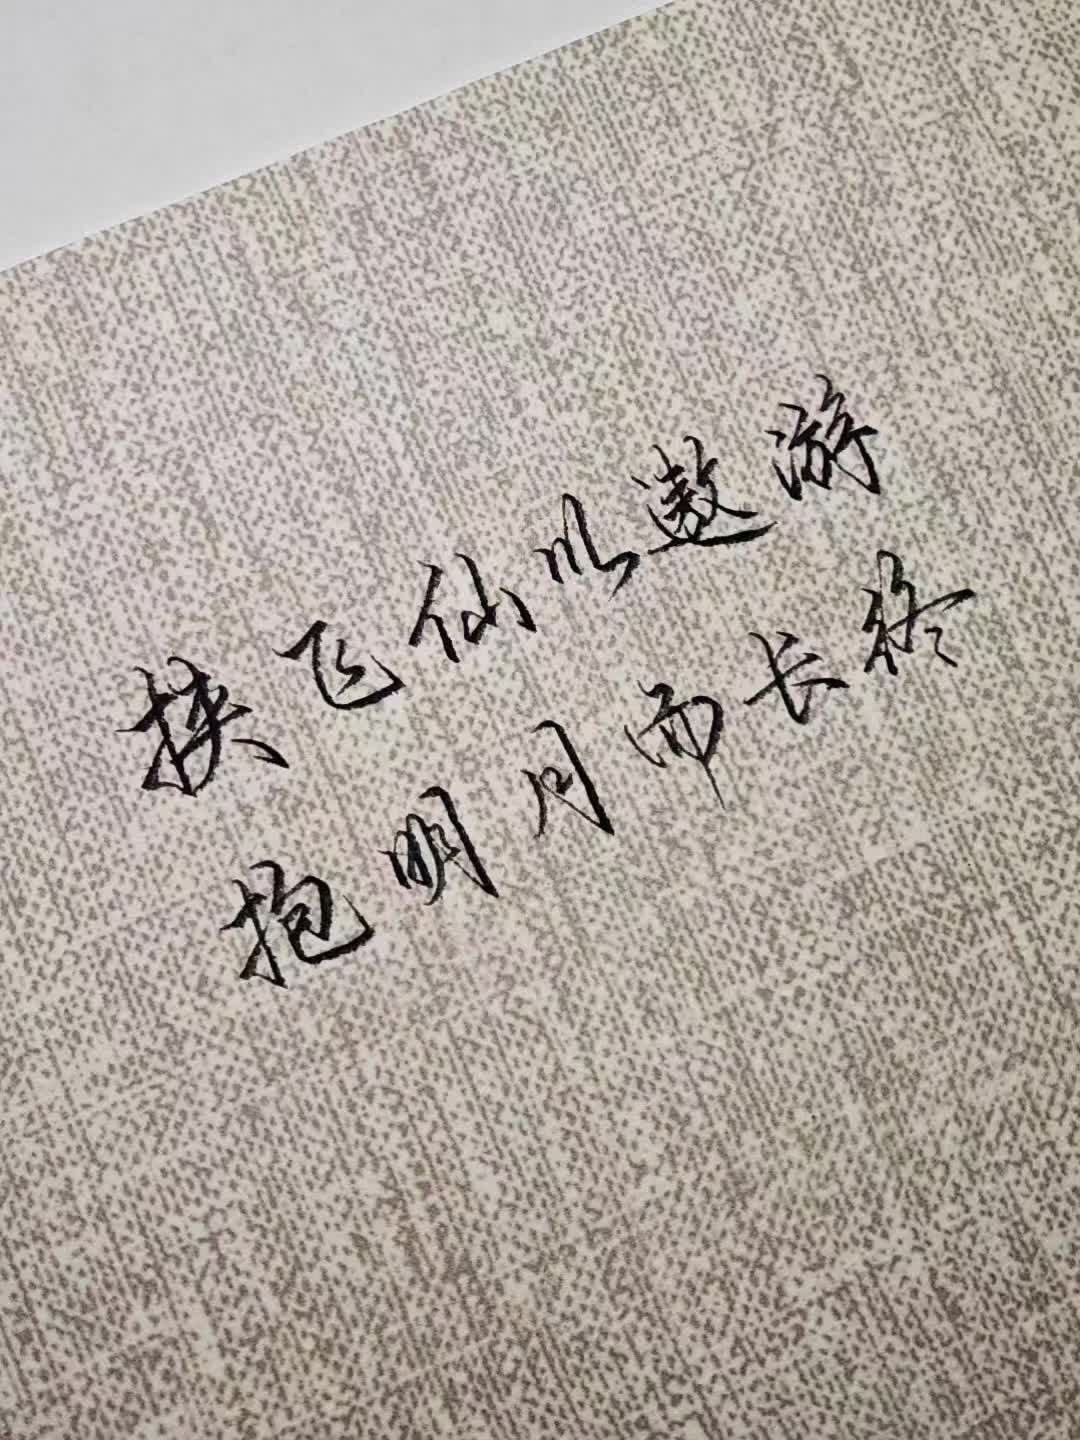 挟飞仙以遨游
抱明月而长终